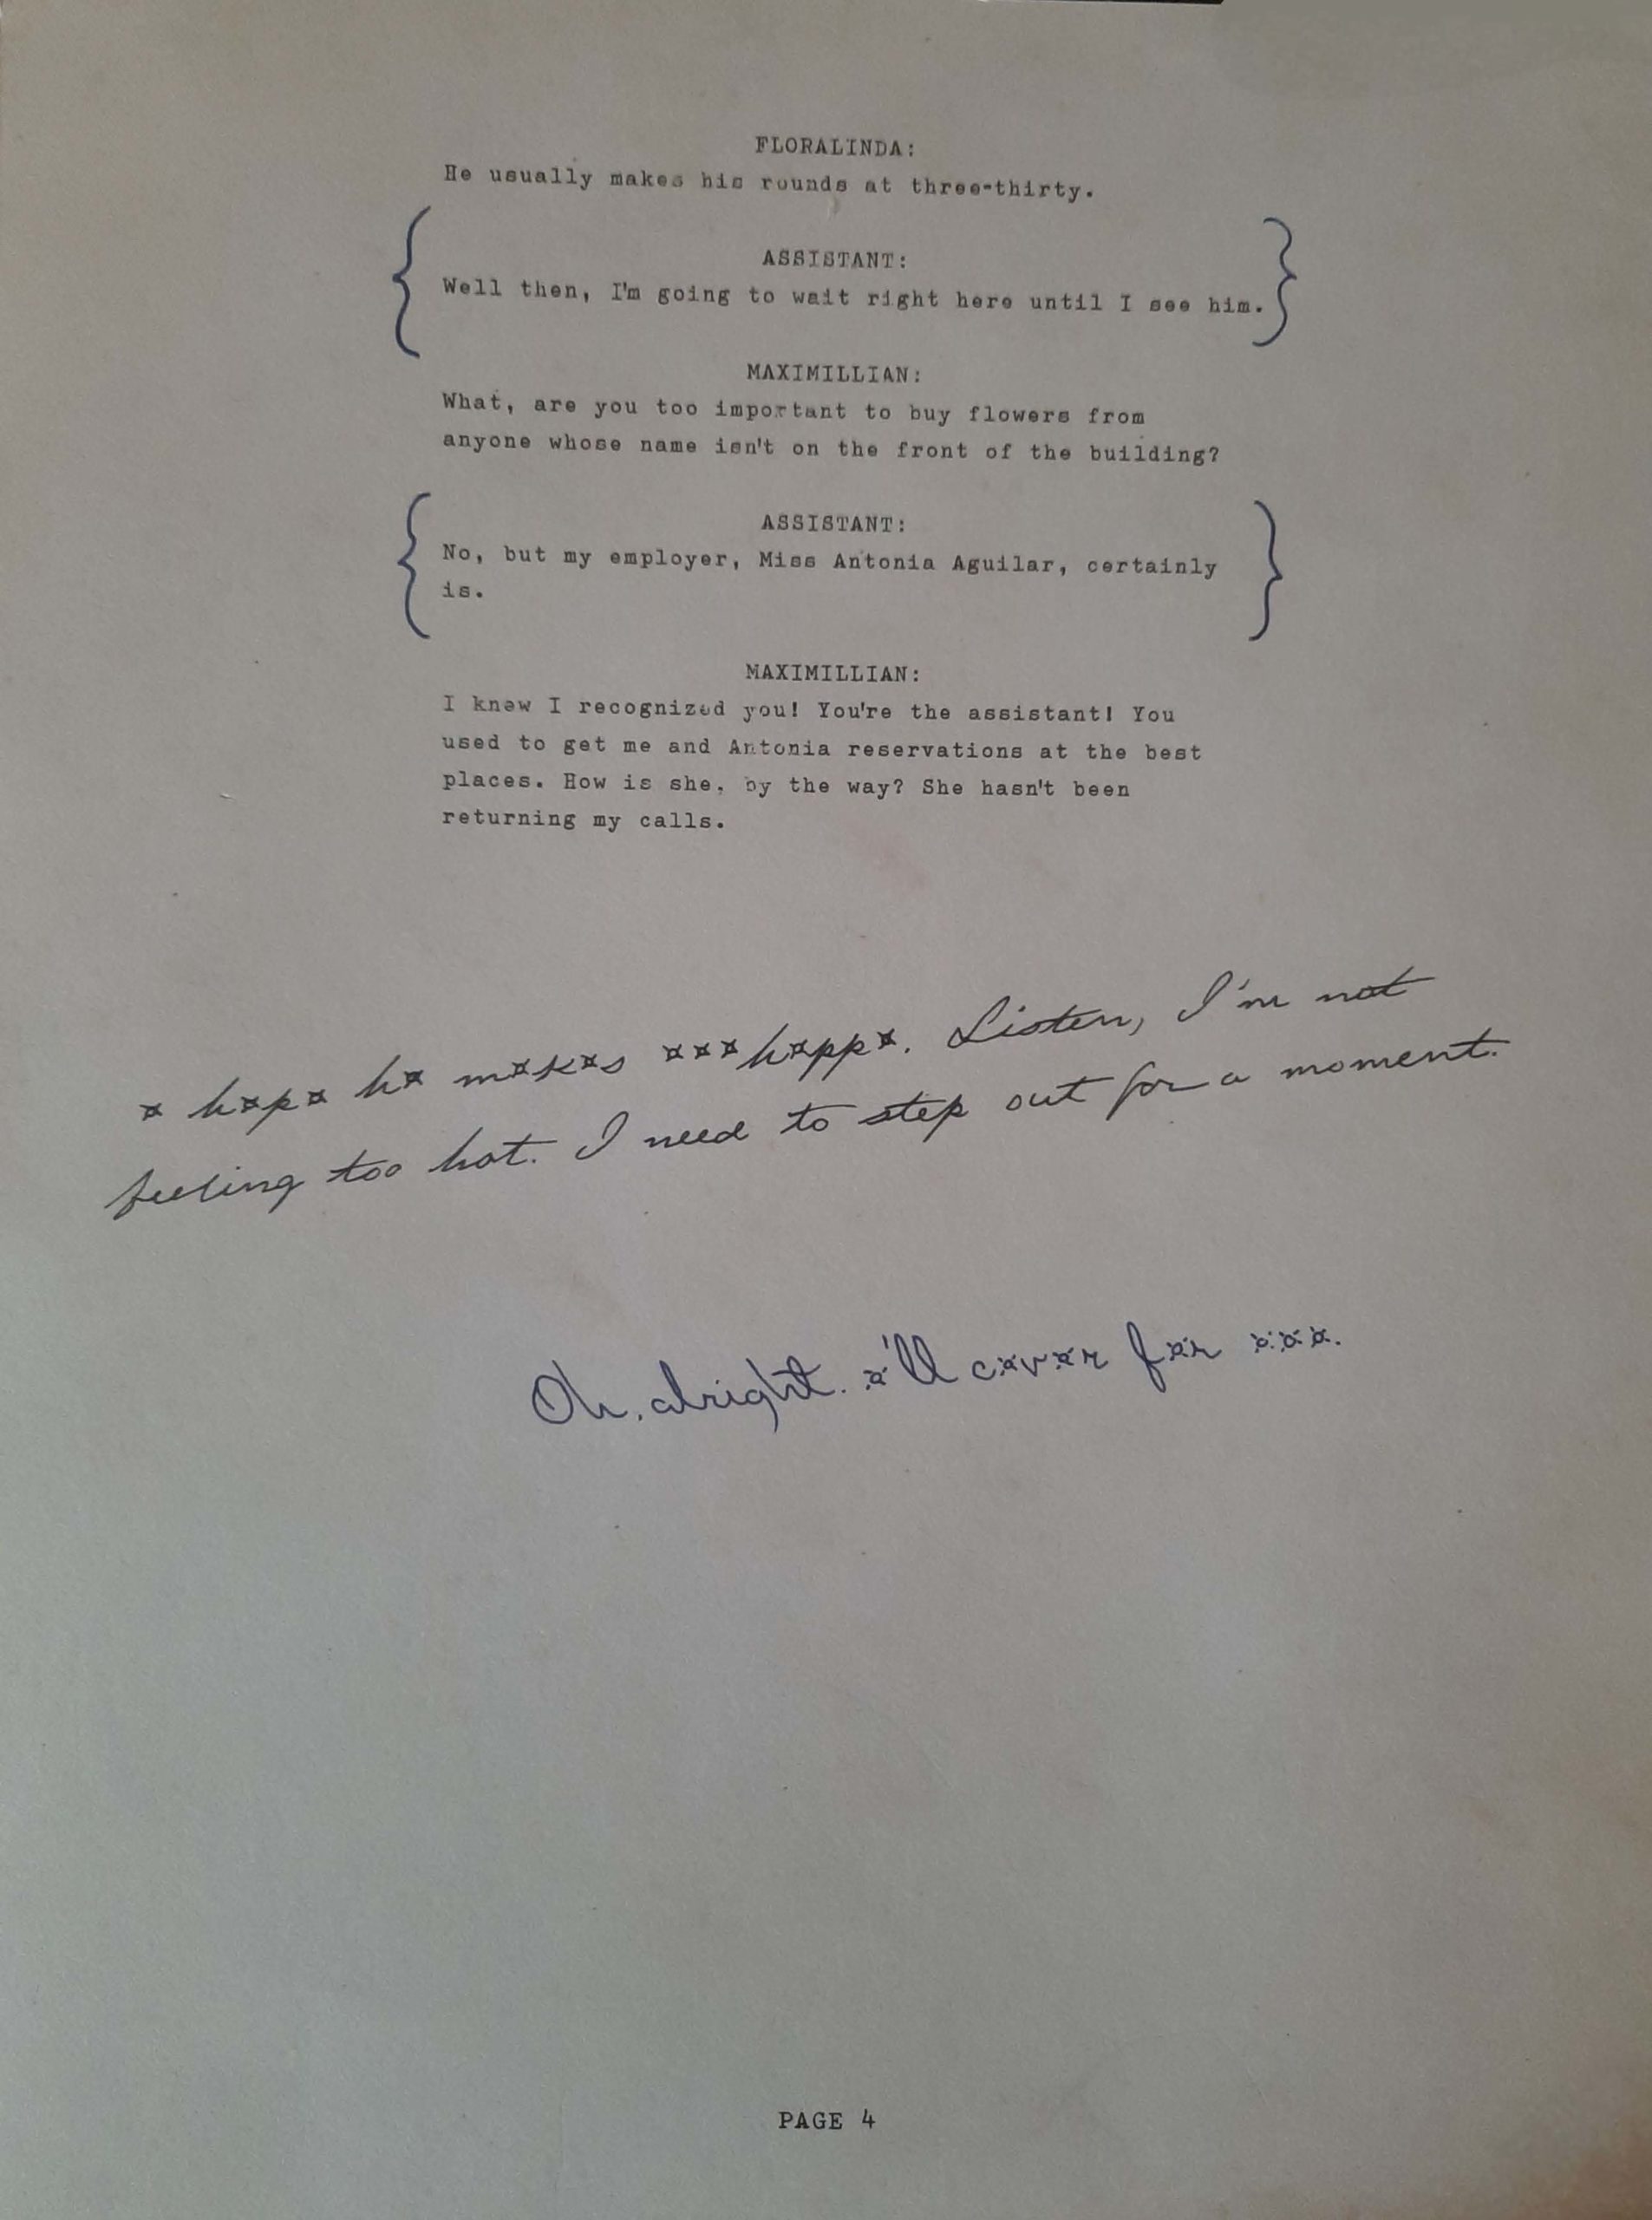 FLORALINDA:
He usually makes his rounds at three-thirty.
ASSISTANT:
Well then, I'm going to wait right here until I see him.
MAXIMILLIAN:
What, are you too important to buy flowers from
anyone whose name isn't on the front of the building?
ASSISTANT:
No, but my employer, Miss Antonia Aguilar, certainly
is.
MAXIMILLIAN:
I knew I recognized you! You're the assistant! You
used to get me and Antonia reservations at the best
places. How is she, by the way? She hasn't been
returning my calls.
¤ h¤p¤ h¤ m¤k¤s ¤¤¤ h¤pp¤. Listen, I'm not
feeling too hot. I need to step out for a moment.
Oh, alright. ¤'ll c¤v¤r f¤r ¤¤¤.
PAGE 4